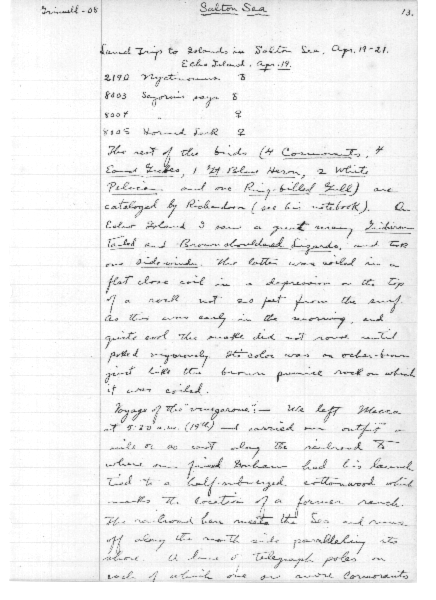 Grinnell-08
Salton Sea
13.
Second Trip to Islands in Salton Sea, Apr. 19-21.
Echo Island, Apr. 19.
2190 Nyctinomus ♂
8003 Sayornis saya ♂
8004 " ♀
8005 Horned Lark ♀
The rest of the birds (4 Cormorants, 4
Eared Grebes, 1 Gt Blue Heron, 2 White
Pelicans, and one Ring-billed Gull) are
cataloged by Richardson (see his notebook). On
Echo Island I saw a great many Gridiron
tailed and Brown-shouldered Lizards, and took
one side-winder. The latter was coiled in a
flat close coil in a depression on the top
of a rock not 20 feet from the surf.
As this was early in the morning, and
quite cool the snake did not rouse until
poked vigorously. Its color was an ocher-brown
just like the brown pumice rock on which
it was coiled.
Voyage of the "vinegarone":— We left Mecca
at 5:20 a.m. (19th) and carried our outfit a
mile or so east along the railroad to
where our friend had his launch
tied to a half-submerged cottonwood which
marks the location of a former ranch.
The railroad here meets the Sea and runs
off along the north side paralleling its
shore. A line of telegraph poles on
each of which one or more cormorants